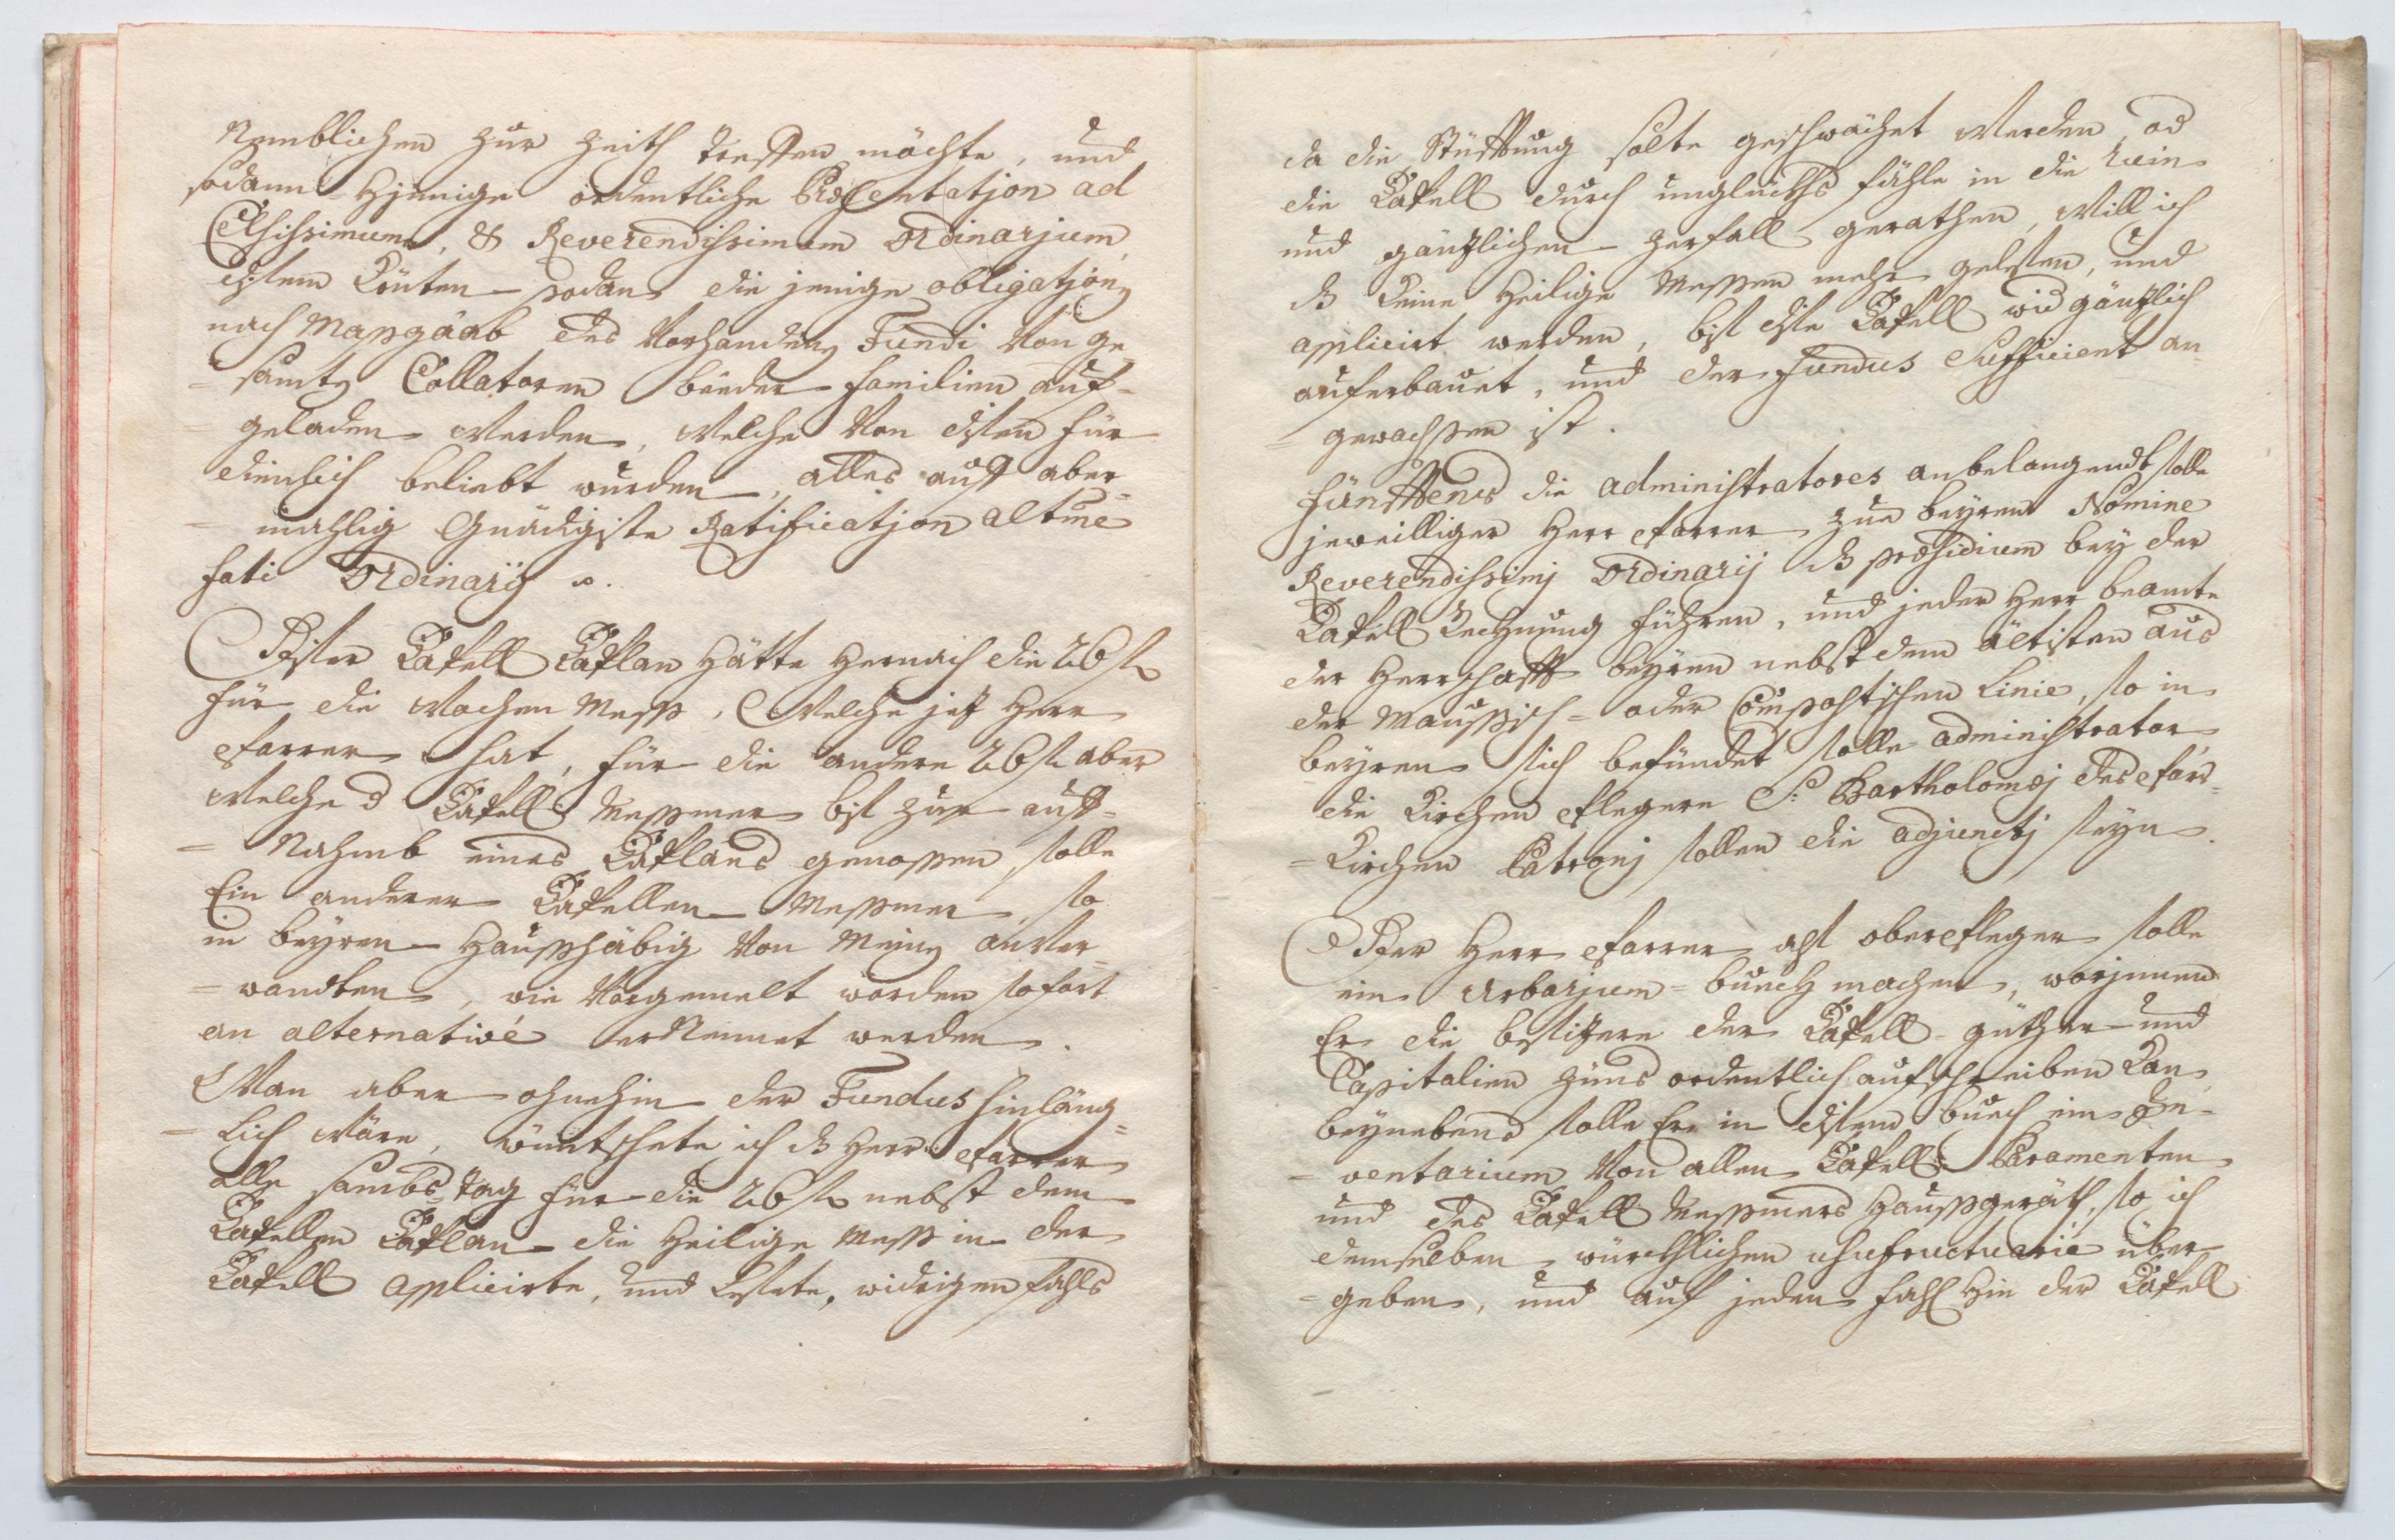 Nemblichen zur Zeith treffen möchte, und
sodann Hjenige ordentliche Præsentatjon ad
Celsissimum, & Reverendissimum Ordinarjum,
disem Könten sodan die jenige obligatjonen
nach Massgaab des Vorhanden Fundi Von ge
= samten Collatoren beeder Familien auf=
geladen Werden, Welche Von disen für
dienlich beliebt wurden, alles auff aber=
= mahlig Gnädigste Ratificatjon altme
fati Ordinarij
Diser Capell Caplan Hätte Hernach die 26 fl
für die Wochen Mess, Welche jez Herr
Pfarrer hat, für die andere 26 fl aber
Welche d Capell Messmer biss zur auff=
= Nahmb eines Caplans genossen, solle
Ein anderer Capellen Messmer, so
in beyren Hausshäbig Von Meinen anVer=
= wandten, wie Vorgemelt worden sofort
an alternativé erNennet werden.
Wan aber ohnehin der Fundus hinläng=
= lich Wäre, wüntschete ich dz Herr Pfarrer
alle Sambs=tag für die 26 fl nebst dem
Capellen Caplan die Heilige Mess in der
Capell applicirte, und Lesete, widrigen fahls
da die Stüfftung solte geschwächet Werden, od
die Capell durch unglückhs fähle in die Ruin
und gänzlichen Zerfall gerathen, Will ich
dz Keine Heilige Messen mehr gelesen, und
applicirt werden, biss dise Capell wid gänzlich
auferbauet, und der fundus Sufficient an
= gewachssen ist.
Fünfftens die administratores anbelangendt solle
jeweilliger Herr Pfarrer zue beyren Nomine
Reverendissimj Ordinarij dz præsidium bey der
Capell Rechnung führen, und jeder Herr beamte
der Herrschafft beyren nebst dem ältisten aus
der Maussisch= oder Compostischen Linie, so in
beyren sich befündet solle administrator
die Kirchen Pflegere S: Bartholomæj des Pfarr=
= Kirchen Patronj sollen die adjunctj seyn.
Der Herr Pfarrer alss oberPfleger solle
ein Urbarjum=buech machen, worjnnen
Er die besizere der Capell=güther und
Capitalien Züns ordentlich aufschreiben Kan,
beynebens solle Er in disem buech ein Jn=
= ventarium Von allen Capell Paramenten
und des Capell Messmers Haussgeräth, so ich
demselben würchlichen usufructuarie über
= geben, und auf jeden fahl Hin der Capell